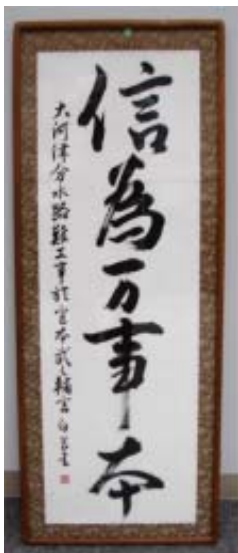 信為万事本
大河津分水路難工事於宮本武之輔言